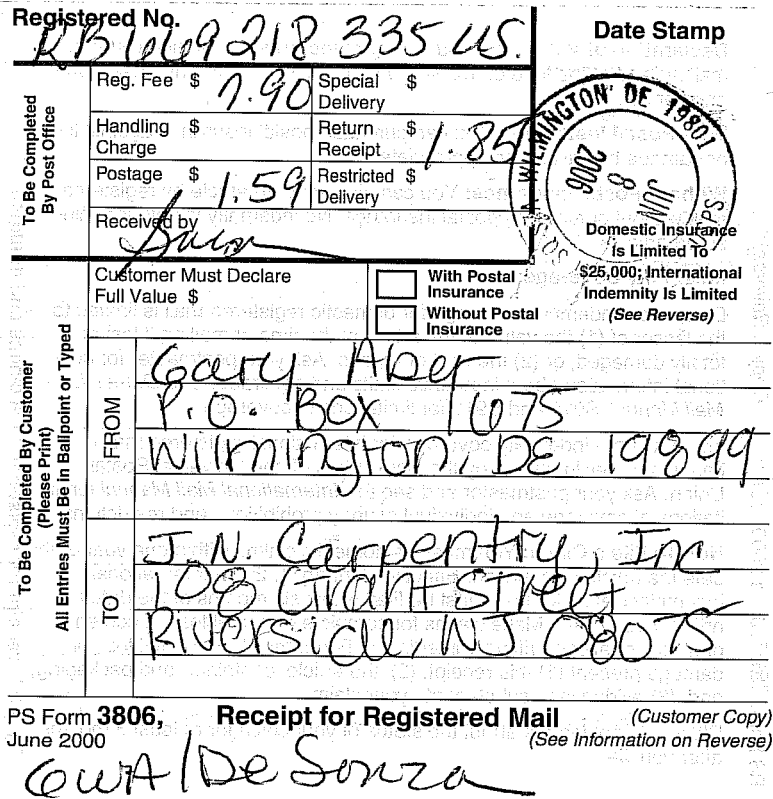 Registered No.
RB 669 218 335 US.
Date Stamp
To Be Completed By Post Office
Reg. Fee $ 7.90
Special Delivery $
Handling Charge $
Return Receipt $ 1.85
Postage $ 1.59
Restricted Delivery $
Received by
WILMINGTON DE 19801
JUN 8 2006
USPS
Domestic Insurance
Is Limited To
$25,000; International
Indemnity Is Limited
(See Reverse)
Customer Must Declare
Full Value $
With Postal
Insurance
Without Postal
Insurance
To Be Completed By Customer
(Please Print)
All Entries Must Be in Ballpoint or Typed
FROM
Gary Aber
P.O. Box 1675
Wilmington, DE 19899
TO
J.N. Carpentry, Inc
108 Grant Street
Riverside, NJ 08075
PS Form 3806, Receipt for Registered Mail (Customer Copy)
June 2000 (See Information on Reverse)
GWA/DeSonza